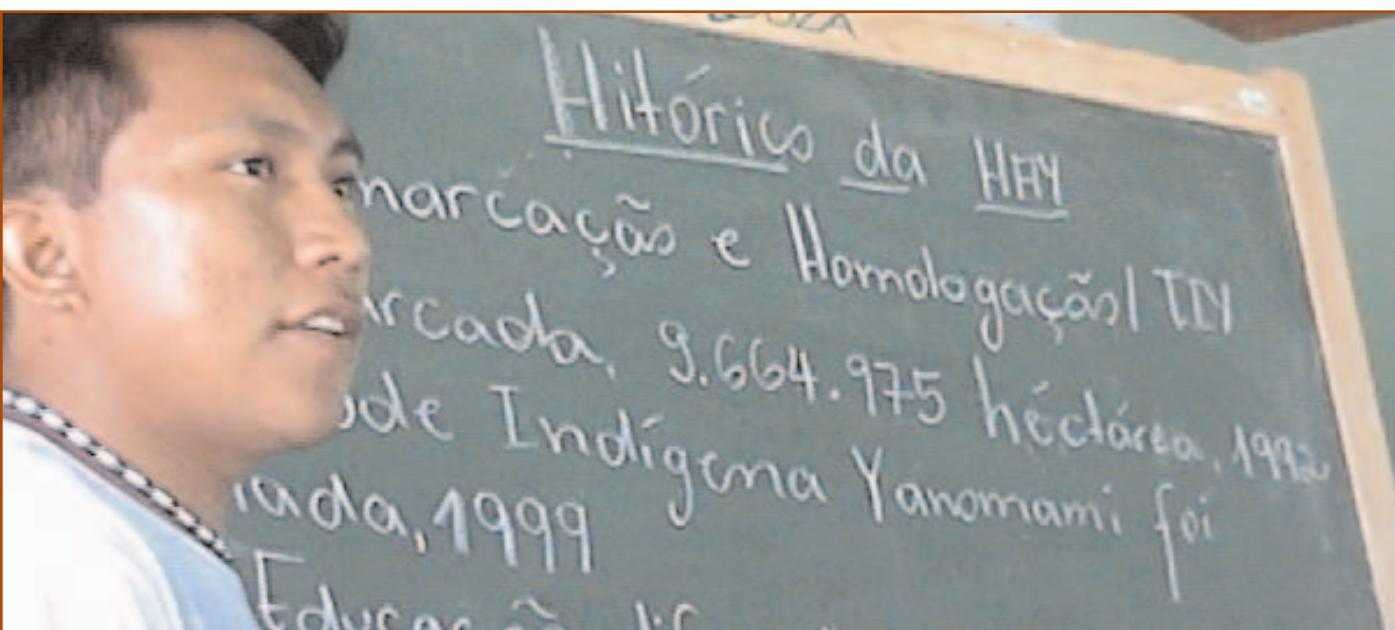 OUZA
Hitórico da HAY
marcação e Homologação/ TIY
arcada, 9.664.975 héctárea, 1992
úde Indígena Yanomami foi
iada, 1999
Educação dif